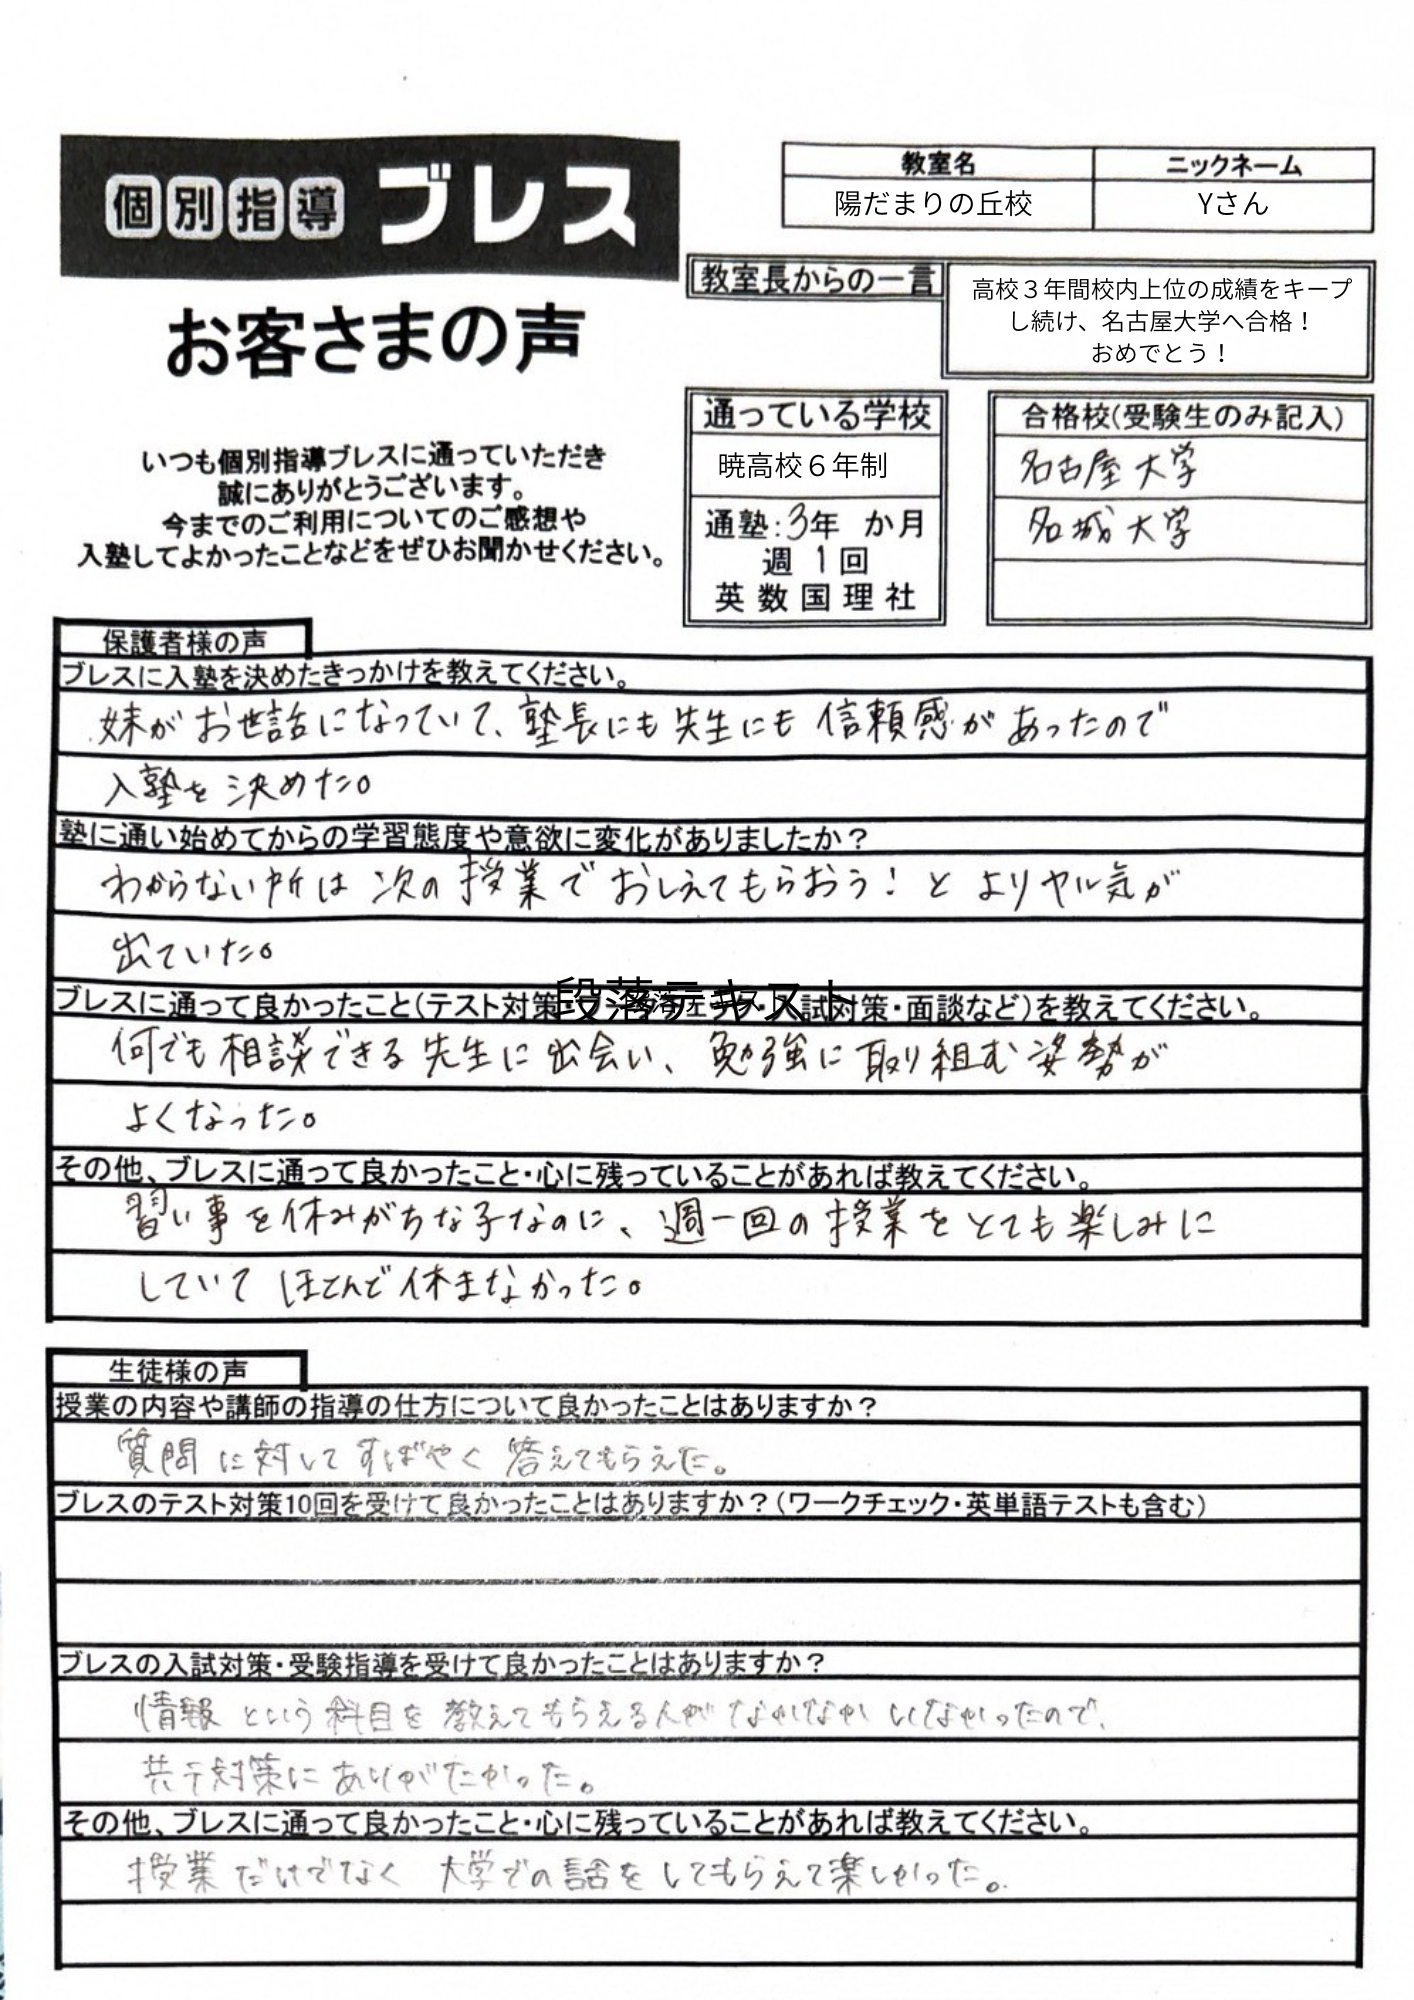 個別指導 ブレス
お客さまの声
いつも個別指導ブレスに通っていただき
誠にありがとうございます。
今までのご利用についてのご感想や
入塾してよかったことなどをぜひお聞かせください。
教室名 ニックネーム
陽だまりの丘校 Yさん
教室長からの一言
高校３年間校内上位の成績をキープ
し続け、名古屋大学へ合格！
おめでとう！
通っている学校
暁高校６年制
通塾:3年 か月
週 1 回
英 数 国 理 社
合格校(受験生のみ記入)
名古屋大学
名城大学
保護者様の声
ブレスに入塾を決めたきっかけを教えてください。
妹がお世話になっていて、塾長にも先生にも信頼感があったので
入塾を決めた。
塾に通い始めてからの学習態度や意欲に変化がありましたか？
わからない所は次の授業でおしえてもらおう！とよりヤル気が
出ていた。
ブレスに通って良かったこと(テスト対策・ 試対策・面談など)を教えてください。
段落テキスト
何でも相談できる先生に出会い、勉強に取り組む姿勢が
よくなった。
その他、ブレスに通って良かったこと・心に残っていることがあれば教えてください。
習い事を休みがちな子なのに、週一回の授業をとても楽しみに
していてほとんど休まなかった。
生徒様の声
授業の内容や講師の指導の仕方について良かったことはありますか？
質問に対してすばやく答えてもらえた。
ブレスのテスト対策10回を受けて良かったことはありますか？(ワークチェック・英単語テストも含む)
ブレスの入試対策・受験指導を受けて良かったことはありますか？
情報という科目を教えてもらえる人がなかなかいなかったので、
共テ対策にありがたかった。
その他、ブレスに通って良かったこと・心に残っていることがあれば教えてください。
授業だけでなく大学での話をしてもらえて楽しかった。